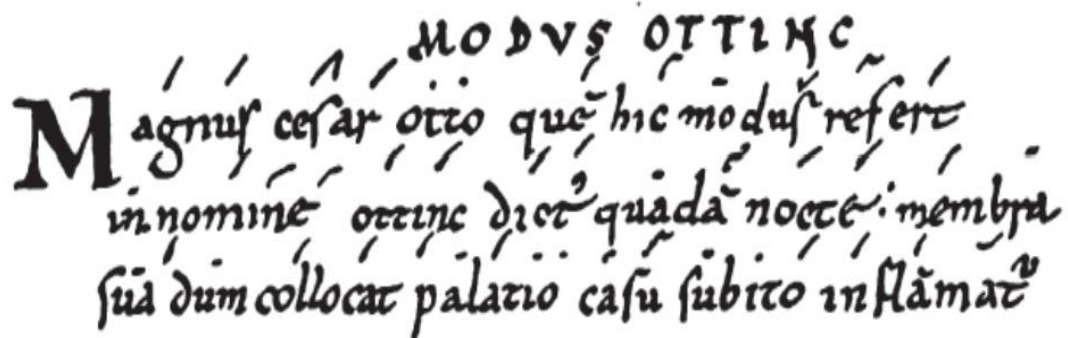 MODVS OTTINC
Magnuſ ceſar otto quē hic moduſ refert
in nomine ottinc dict᾽ quadā nocte· membra
ſua dum collocat palatio caſu ſubito inflāmat᷑